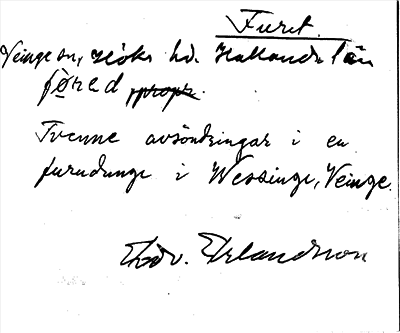 Furet.
Veinge sn, Höks hd. Hallands län
föred propr.
Tvenne avsöndringar i en
furudunge i Wessinge, Veinge.
Edv. Erlandsson